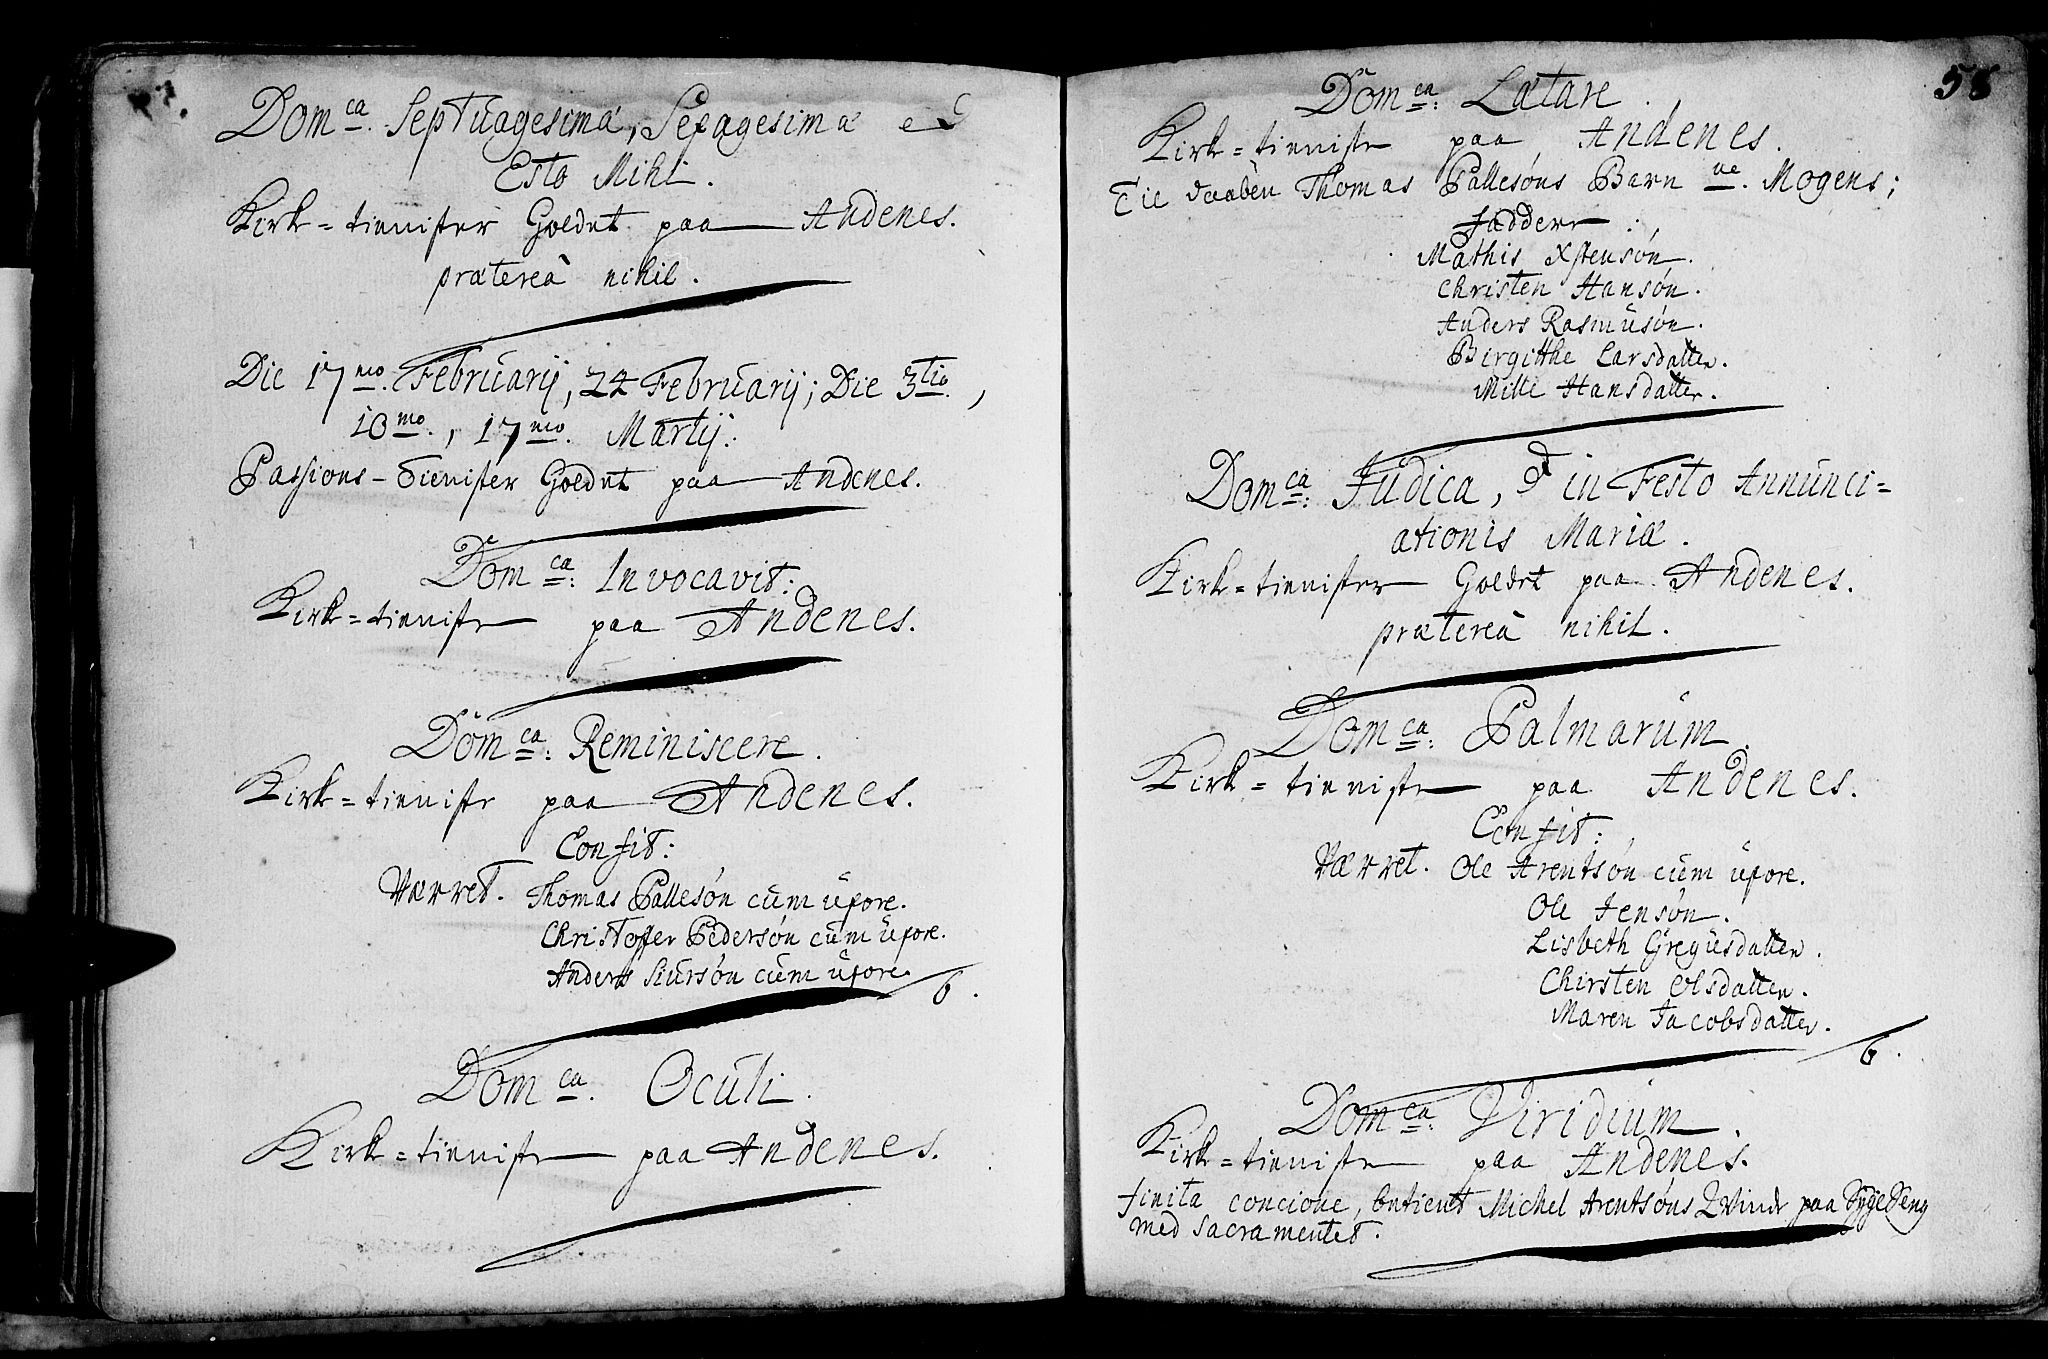 Dom ca. Septuagesima, Sexagesima et
Esto Mihi.
Kirk=tienister Holdet paa Andenes.
prætereà nihil.
Die 17 mo. Februarij, 24 Februarij; Die 3 tio.,
10 mo., 17 mo. Martij.
Passions-Tienister Holdet paa Andenes.
Dom ca: Invocavit:
Kirk=tieniste paa Andenes.
Dom ca: Reminiscere.
Kirk=tieniste paa Andenes.
Confit:
Værret. Thomas Pallesøn cum uxore.
Christoffer Pedersøn cum uxore.
Anders Siursøn cum uxore.
6.
Dom ca. Oculi.
Kirk=tieniste paa Andenes.
58
Dom ca: Lætare.
Kirk=tieniste paa Andenes.
Tie daaben Thomas Pallesøns Barn ne. Mogens;
Faddere:
Mathis Xstensøn.
Christen Hansøn.
Anders Rasmusøn.
Birgitthe Larsdatter.
Mille Hansdatter.
Dom ca: Judica, & in Festo Annunci=
ationis Mariæ.
Kirk=tienister Holdet paa Andenes.
prætereà nihil.
Dom ca: Palmarum.
Kirk=tieniste paa Andenes.
Confit:
Værret. Ole Arentsøn cum uxore.
Ole Jensøn.
Lisbeth Gregusdatter.
Chirsten Olsdatter.
Maren Jacobsdatter.
6.
Dom ca: Viridium.
Kirk=tieniste paa Andenes.
finita concione, betient Michel Arentsøns Qvinde paa SygeSeng
med Sacramentet.